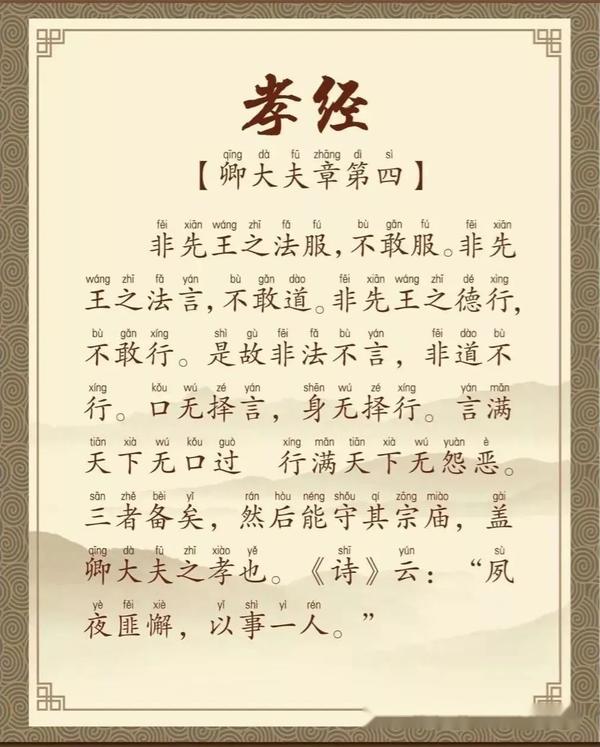 孝经
qīng dà fū zhāng dì sì
【卿大夫章第四】
fēi xiān wáng zhī fǎ fú bù gǎn fú fēi xiān
非先王之法服，不敢服。非先
wáng zhī fǎ yán bù gǎn dào fēi xiān wáng zhī dé xìng
王之法言，不敢道。非先王之德行，
bù gǎn xíng shì gù fēi fǎ bù yán fēi dào bù
不敢行。是故非法不言，非道不
xíng kǒu wú zé yán shēn wú zé xíng yán mǎn
行。口无择言，身无择行。言满
tiān xià wú kǒu guò xíng mǎn tiān xià wú yuàn è
天下无口过 行满天下无怨恶。
sān zhě bèi yǐ rán hòu néng shǒu qí zōng miào gài
三者备矣，然后能守其宗庙，盖
qīng dà fū zhī xiào yě shī yún sù
卿大夫之孝也。《诗》云：“夙
yè fěi xiè yǐ shì yì rén
夜匪懈，以事一人。”